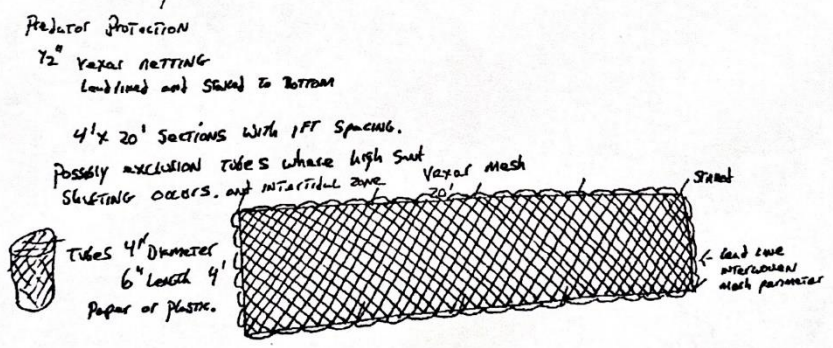 Predator Protection
1/2" Vexar netting
Leadlined and Staked to Bottom
4' x 20' Sections with 1FT Spacing.
Possibly exclusion tubes where high
Shifting occurs. and intertidal zone
Vexar Mesh
20'
Staked
Tubes 4" Diameter
6" Length 4'
Paper or Plastic.
Lead line
interwoven
mesh perimeter